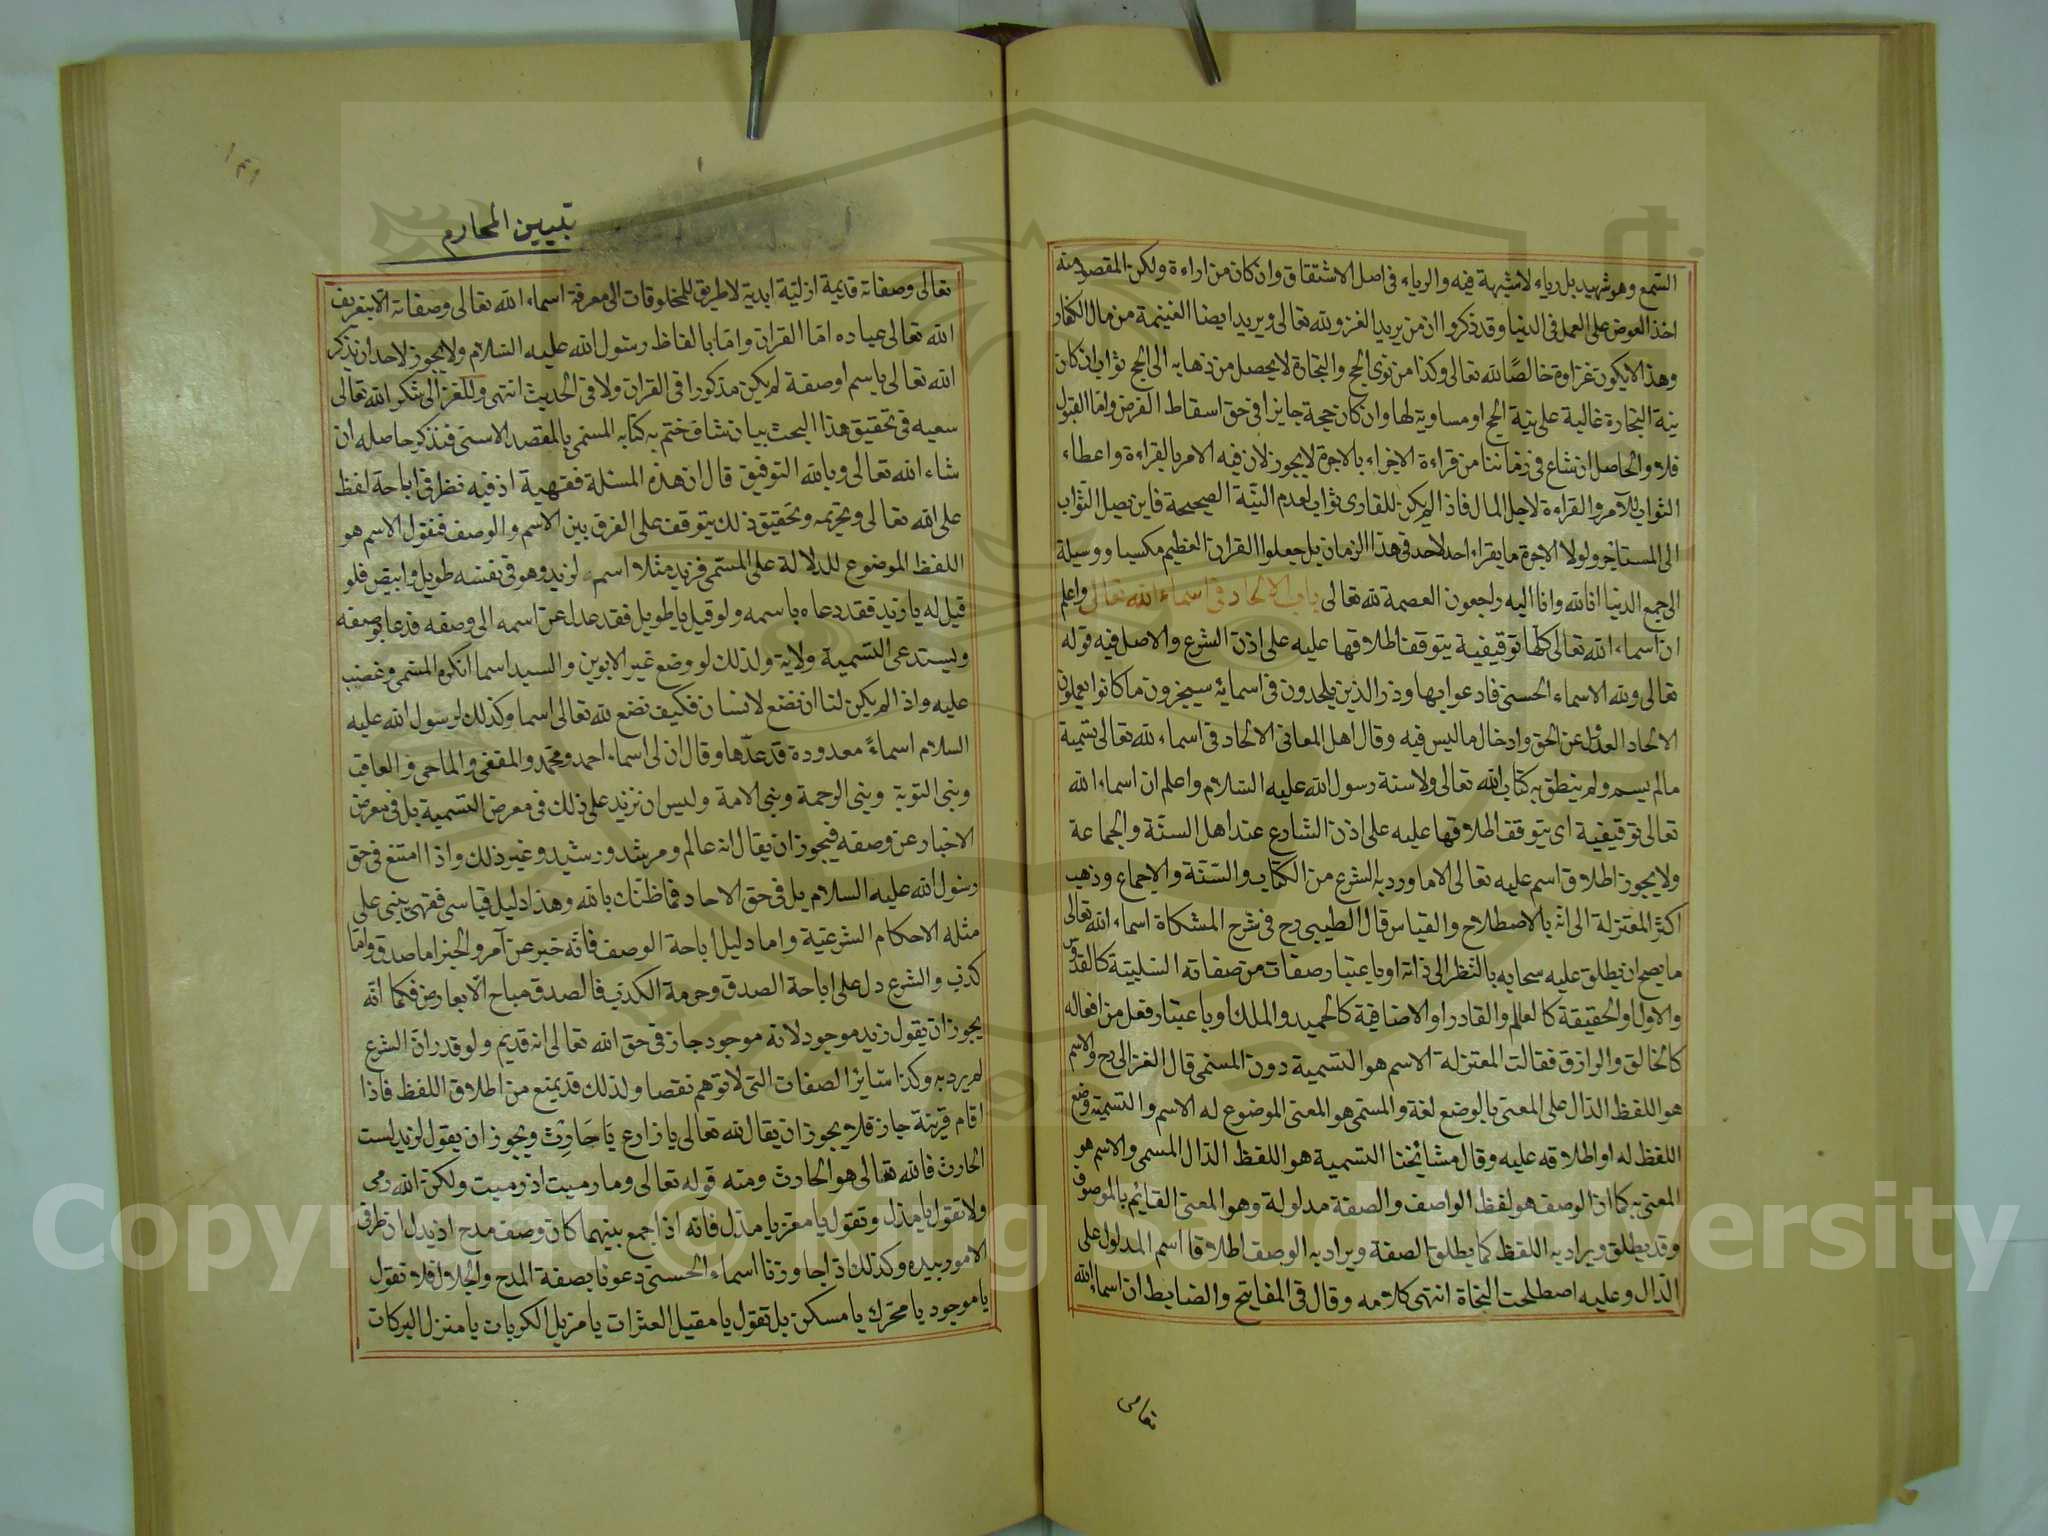 السمع وهو شهيد بل رياء لا شبهة فيه والرياء في اصل الاشتقاق وان كان من اراءة ولكن المقصود منه
اخذ العوض على العمل في الدنيا وقد ذكروا ان من يريد الغزو لله تعالى ويريد ايضا الغنيمة من مال الكفار
وهذا لا يكون غزاوة خالصًا لله تعالى وكذا من نوى الحج والتجارة لا يحصل من ذهابه الى الحج ثواب ان كان
نية التجارة غالبة على نية الحج او مساوية لها وان كان حجة جايزا في حق اسقاط الفرض واما القبول
فلا والحاصل ان شاع في زماننا من قراءة الاجزاء بالاجرة لا يجوز لان فيه الامر بالقراءة واعطاء
الثواب للآمر والقراءة لاجل المال فاذا لم يكن للقارى ثواب لعدم النيّة الصحيحة فاين يصل الثواب
الى المستأجر ولولا الاجرة ما يقراء احد لاحد في هذا الزمان بل جعلوا القران العظيم مكسبا ووسيلة
الى جمع الدنيا انا لله وانا اليه راجعون العصمة لله تعالى باب الالحاد في اسماء الله تعالى واعلم
ان اسماء الله تعالى كلها توقيفية يتوقف اطلاقها عليه على اذن الشرع والاصل فيه قوله
تعالى ولله الاسماء الحسنى فادعوا بها وذر الذين يلحدون في اسمايه سيجزون ما كانوا يعملون
الالحاد العدول عن الحق وادخال ما ليس فيه وقال اهل المعانى الالحاد في اسماء لله تعالى تسمية
مالم يسم ولم ينطق به كتاب الله تعالى ولا سنة رسول الله عليه السلام واعلم ان اسماء الله
تعالى توقيفية اى يتوقف اطلاقها عليه على اذن الشارع عند اهل السنّة والجماعة
ولا يجوز اطلاق اسم عليه تعالى الا ما ورد به الشرع من الكتاب والسّنّة والاجماع وذهب
اكثر المعتزلة الى انّه بالاصطلاح والقياس قال الطيبى رح في شرح المشكاة اسماء الله تعالى
ما يصح ان يطلق عليه سحابه بالنظر الى ذاته او باعتبار صفات من صفاته السّلبيّة كالقدّوس
والاول والحقيقة كالعالم والقادر او الاضافية كالحميد والملك او باعتبار فعل من افعاله
كالخالق والرازق فقالت المعتزلة الاسم هو التسمية دون المسمى قال الغزالى رح والاسم
هو اللفظ الدّال على المعنى بالوضع لغة والمسمى هو المعنى الموضوع له الاسم والتسمية وضع
اللفظ له او اطلاقه عليه وقال مشائخنا التسمية هو اللفظ الدّال المسمى والاسم هو
المعنى به كما ان الوصف هو لفظ الواصف والصفة مدلولة وهو المعنى القايم بالموصوف
وقد يطلق ويراد به اللفظ كما يطلق الصفة ويراد به الوصف اطلاقا اسم المدلول على
الدّال وعليه اصطلحت النحاة انتهى كلامه وقال في المفاتيح والضابط ان اسماء الله
تعالى
١٣١
تبيين المحارم
تعالى وصفاته قديمة ازليّة ابدية لا طريق للمخلوقات الى معرفة اسماء الله تعالى وصفاته الا بتعريف
الله تعالى عباده امّا القران وامّا بالفاظ رسول الله عليه السّلام ولا يجوز لاحد ان يذكر
الله تعالى باسم او صفة لم يكن مذكورا في القران ولا في الحديث انتهى وللغزالى شكر الله تعالى
سعيه في تحقيق هذا البحث بيان شاف ختم به كتابه المسمى بالمقصد الاسنى فنذكر حاصله ان
شاء الله تعالى وبالله التوفيق قال ان هذه المسئلة فقهية اذ فيه نظر في اباحة لفظ
على الله تعالى وتحريمه وتحقيق ذلك يتوقف على الفرق بين الاسم والوصف فنقول الاسم هو
اللفظ الموضوع للدلالة على المسمى فزيد مثلا اسم لزيد وهو في نفسه طويل وابيض فلو
قيل له يا زيد فقد دعاه باسمه ولو قيل يا طويل فقد عدل عن اسمه الى وصفه فدعا بوصفه
ويستدعى التسمية ولاية ولذلك لو وضع غير الابوين والسيد اسما انكره المسمى وغضب
عليه واذا لم يكن لنا ان نضع لانسان فكيف نضع لله تعالى اسما وكذلك لرسول الله عليه
السلام اسماءً معدودة قد عدّها وقال ان لى اسماء احمد ومحمد والمقفى والماحى والعاقب
ونبى التوبة ونبى الرحمة ونبى الامة وليس ان نزيد على ذلك في معرض التسمية بل في معرض
الاخبار عن وصفه فيجوز ان يقال انه عالم ومرشد ورشيد وغير ذلك واذا امتنع في حق
رسول الله عليه السلام بل في حق الاحاد فما ظنّك بالله وهذا دليل قياسى فقهى يبنى على
مثله الاحكام الشرعيّة واما دليل اباحة الوصف فانّه خبر عن آمر والخبر اما صدق واما
كذب والشرع دل على اباحة الصدق وحرمة الكذب فالصدق مباح الّا بعارض فكما انّه
يجوز ان يقول زيد موجود لانه موجود جاز في حق الله تعالى انه قديم ولو قدر ان الشرع
لم يرد به وكذا سائر الصفات التى لا توهم نقصا ولذلك قد يمنع من اطلاق اللفظ فاذا
اقام قرينة جاز فلا يجوز ان يقال لله تعالى يا زارع يا حَارِث ويجوز ان يقول لزيد لست
الحارث فالله تعالى هو الحارث ومنه قوله تعالى وما رميت اذ رميت ولكن الله رمى
ولا تقول يا مذل وتقول يا معز يا مذل فانه اذا جمع بينهما كان وصف مدح اذ يدل ان طرفى
الامور بيده وكذلك اذا جاوزنا اسماء الحسنى دعونا بصفة المدح والجلال فلا تقول
يا موجود يا محرك يا مسكن بل تقول يا مقيل العثرات يا مزيل الكربات يا منزل البركات
Copyright © King Saud University